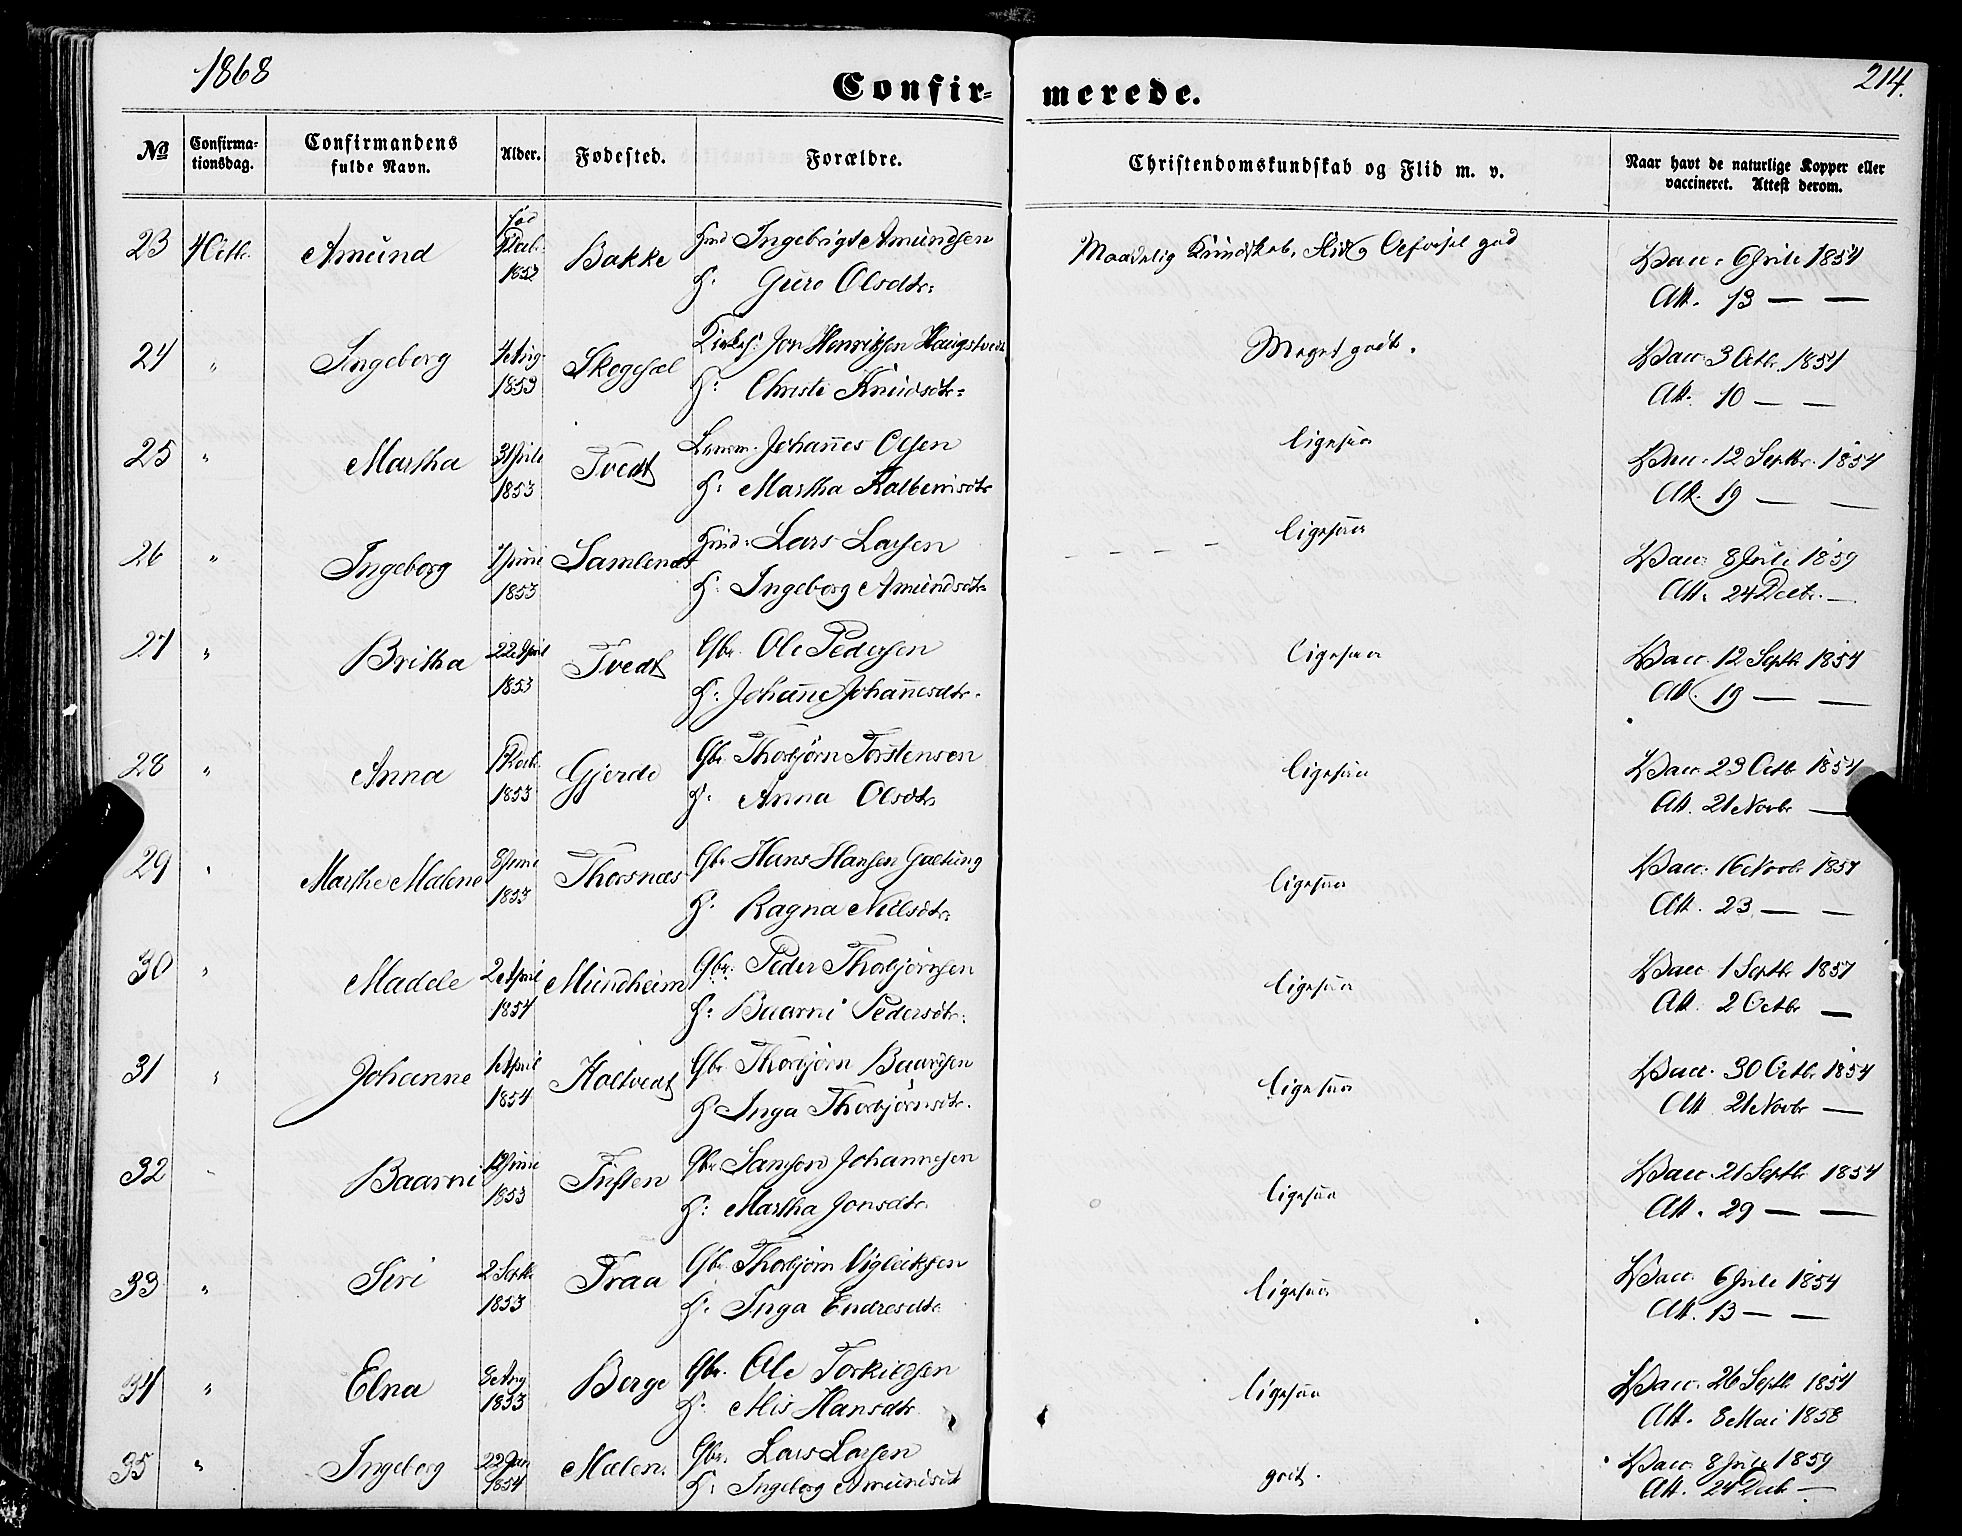 1868
214.
Confir= merede.
No
Confirma-
tionsdag.
Confirmandens
fulde Navn.
Alder.
Fødested.
Forældre.
Christendomskundskab og Flid m. v.
Naar havt de naturlige Kopper eller
vaccineret. Attest derom.
23 4 Octbr. Amund Bakke Ingebrigt Amundsen
1853 H: Guro Olsdtr:
Maadelig Kundskab, Flid og Opførsel god
Vacc. 6 Juli 1854
Att. 13 — —
24 " Ingeborg 4 Aug. Skogsæl Jon Henriksen Haugstvedt
1853 H: Christi Knudsdtr:
Meget godt.
Vacc. 3 Octbr. 1854
Att. 10 — —
25 " Martha Tvedt Lensm. Johannes Olsen
1853 H: Martha Kolbensdtr
ligesaa
Vacc. 12 Septbr. 1854
Att. 19 — —
26 " Ingeborg Juni Samlenæs Lars Larsen
1853 H: Ingeborg Amundsdtr:
— — — — ligesaa
Vacc. 8 Juli 1859
Att. 24 Decbr. —
27 " Britha 22 April Tvedt Gbr. Ole Pedersen
1853 H: Johanne Johannesdtr.
ligesaa
Vacc. 12 Septbr 1854
Att. 19 — —
28 " Anna Gjerde Gbr. Thorbjørn Torstensen
1853 H: Anna Olsdtr
ligesaa
Vacc. 23 Octbr 1854
Att. 21 Novbr —
29 " Marthe Malene 8 Juni Thorsnæs Gbr. Hans Hansen Galtung
1853 H: Ragna Nilsdtr.
ligesaa
Vacc. 16 Novbr. 1854
Att. 23 — —
30 " Madele 2 April Mundheim Gbr. Peder Thorbjørnsen
1854 H: Baarni Pedersdtr.
ligesaa
Vacc. 1 Septbr 1857
Att. 2 Octbr —
31 " Johanne April Holtvedt Gbr. Thorbjørn Baardsen
1854 H: Inga Thorbjørnsdtr.
ligesaa
Vacc. 30 Octbr. 1854
Att. 21 Novbr —
32 " Baarni Juni Tuften Gbr. Samson Johannesen
1853 H: Martha Jonsdtr.
ligesaa
Vacc. 21 Septbr 1854
Att. 29 — —
33 " Siri 2 Septbr Traa Gbr. Thorbjørn Vigleiksen
1853 H: Inga Endresdtr.
ligesaa
Vacc. 6 Juli 1854
Att. 13 — —
34 " Elna Aug Berge Gbr. Ole Torkildsen
1853 H: Hansdtr
ligesaa
Vacc. 26 Septbr 1854
Att. 8 Mai 1858
35 " Ingeborg 22 Jan Mælen. Gbr. Lars Larsen
1854 H: Ingeborg Amundsdt
godt.
Vacc. 8 Juli 1859
Att. 24 Decb —